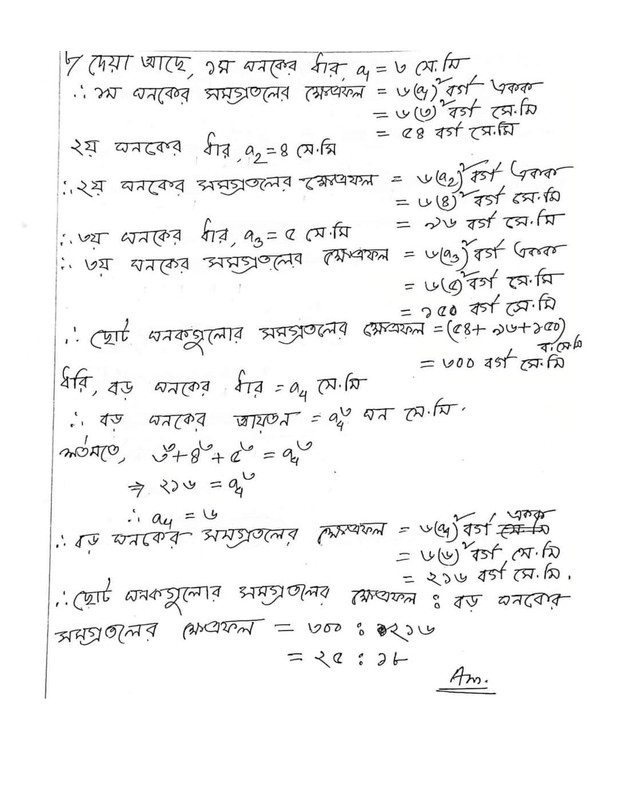 ৮ দেয়া আছে, ১ম ঘনকের ধার, a₁ = ৩ সে.মি
∴ ১ম ঘনকের সমগ্রতলের ক্ষেত্রফল = ৬(a₁)² বর্গ একক
= ৬(৩)² বর্গ সে.মি
= ৫৪ বর্গ সে.মি
২য় ঘনকের ধার, a₂ = ৪ সে.মি
∴ ২য় ঘনকের সমগ্রতলের ক্ষেত্রফল = ৬(a₂)² বর্গ একক
= ৬(৪)² বর্গ সে.মি
= ৯৬ বর্গ সে.মি
∴ ৩য় ঘনকের ধার, a₃ = ৫ সে.মি
∴ ৩য় ঘনকের সমগ্রতলের ক্ষেত্রফল = ৬(a₃)² বর্গ একক
= ৬(৫)² বর্গ সে.মি
= ১৫০ বর্গ সে.মি
∴ ছোট ঘনকগুলোর সমগ্রতলের ক্ষেত্রফল = (৫৪+৯৬+১৫০)
ব.সে.মি
= ৩০০ বর্গ সে.মি
ধরি, বড় ঘনকের ধার = a₄ সে.মি
∴ বড় ঘনকের আয়তন = a₄³ ঘন সে.মি.
শর্তমতে, ৩³ + ৪³ + ৫³ = a₄³
⇒ ২১৬ = a₄³
∴ a₄ = ৬
∴ বড় ঘনকের সমগ্রতলের ক্ষেত্রফল = ৬(a₄)² বর্গ একক
= ৬(৬)² বর্গ সে.মি
= ২১৬ বর্গ সে.মি.
∴ ছোট ঘনকগুলোর সমগ্রতলের ক্ষেত্রফল : বড় ঘনকের
সমগ্রতলের ক্ষেত্রফল = ৩০০ : ২১৬
= ২৫ : ১৮
Am.